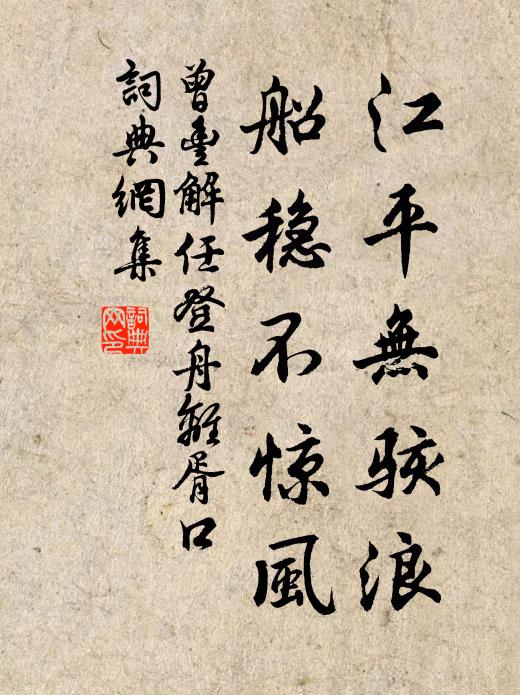 江平無駭浪
船稳不惊風
曾豊解任登舟離胥口
詞典網集
詞典网印